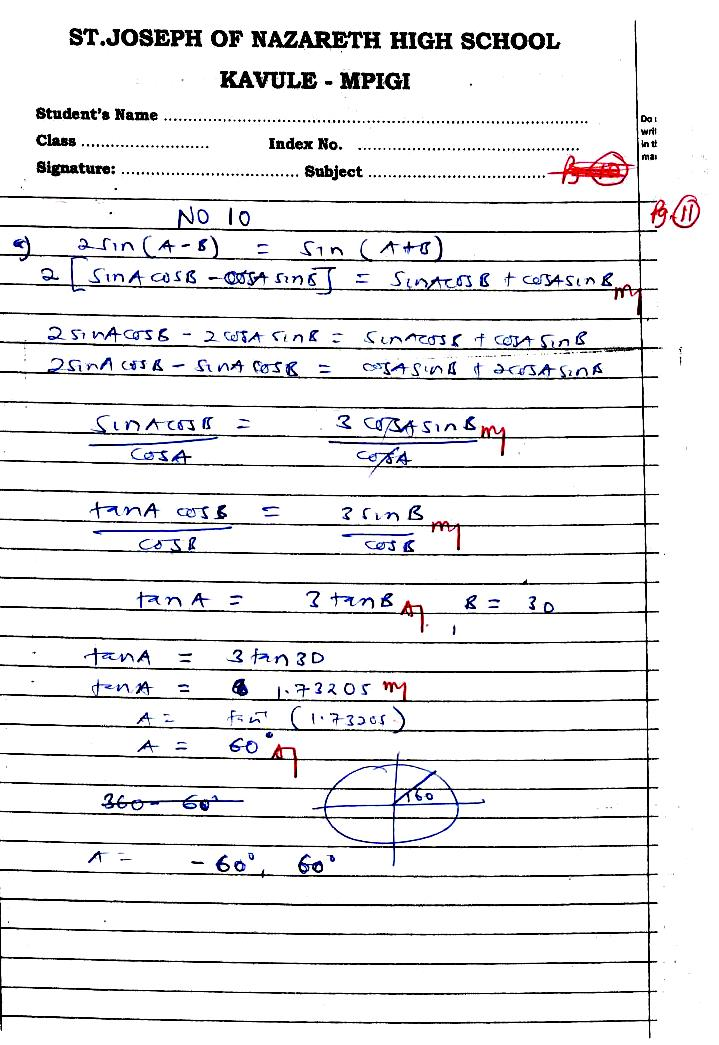 ST.JOSEPH OF NAZARETH HIGH SCHOOL
KAVULE - MPIGI
Student's Name ..........
Class .......... Index No. ..........
Signature: .......... Subject ..........
Do
writ
in th
mar
Pg 11
NO 10
a) 2sin(A-B) = sin(A+B)
2[sinAcosB - cosAsinB] = sinAcosB + cosAsinB M1
2sinAcosB - 2cosAsinB = sinAcosB + cosAsinB
2sinAcosB - sinAcosB = cosAsinB + 2cosAsinB
sinAcosB/cosA = 3cosAsinB/cosA M1
tanA cosB/cosB = 3sinB/cosB M1
tanA = 3tanB A1 B = 30
tanA = 3tan30
tanA = 1.73205 M1
A = tan⁻¹(1.73205)
A = 60° A1
360 - 60°
60
A = -60°, 60°